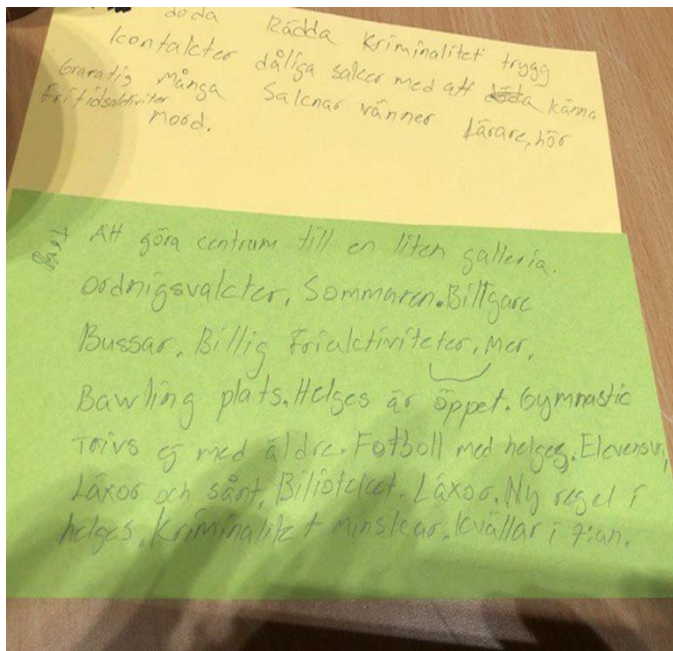 döda Rädda Kriminalitet trygg
kontakter dåliga saker med att känna
Gramatig många Saknar vänner Lärare, hör
Fritidsaktiviter mord.
Att göra centrum till en liten galleria.
Ordnigsvakter. Sommaren. Billigare
Bussar. Billig Friaktiviteter, mer.
Bawling plats. Helges är öppet. Gymnastic
Trivs ej med äldre. Fotboll med helges. Elevensvr,
Läxor och sånt. Biljotekct. Läxor. Ny regel i
helges. Kriminalitet minskar. kvällar i 7:an.